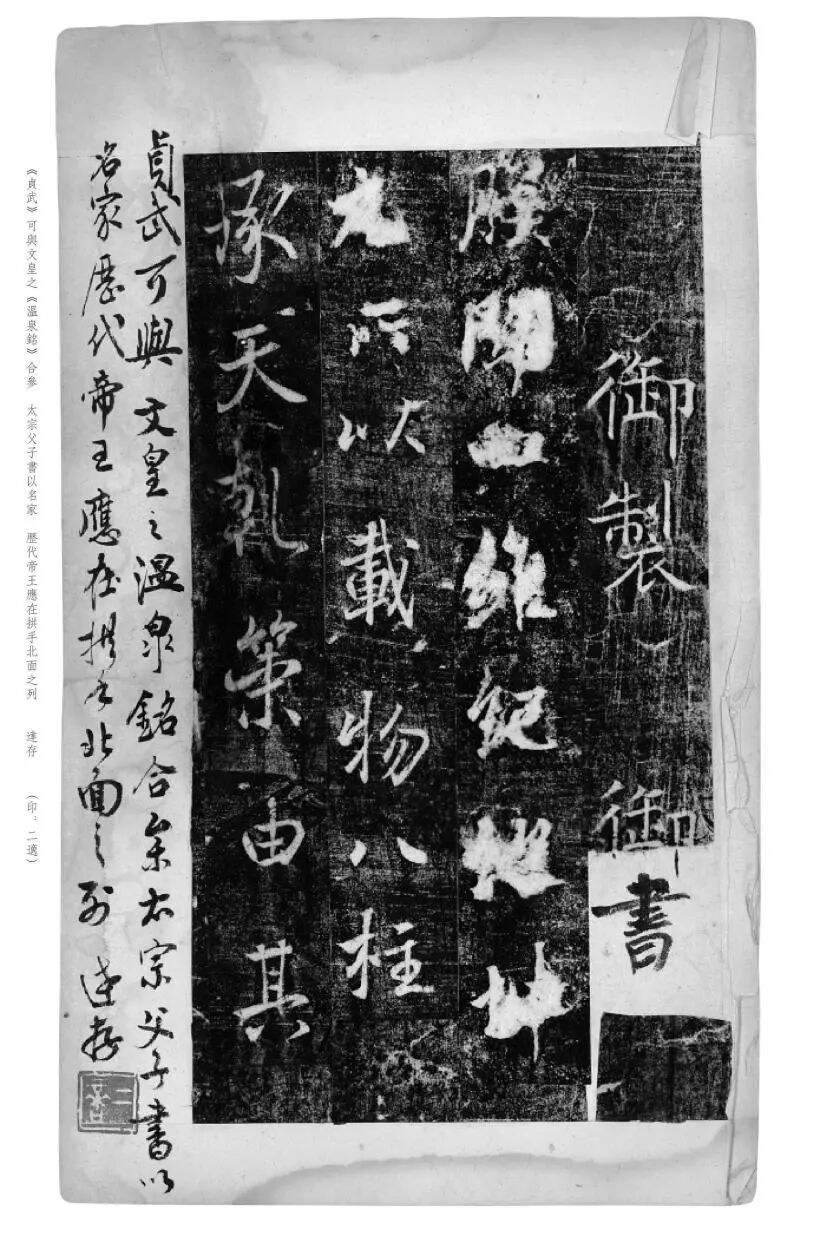 御製 御書
朕聞四維紀地坤
元所以載物八柱
承天乾策由其
貞武可與文皇之溫泉銘合參太宗父子書以
名家歷代帝王應在拱手北面之列 達存
二適
《貞武》可與文皇之《溫泉銘》合參 太宗父子書以名家 歷代帝王應在拱手北面之列 達存 （印：二適）